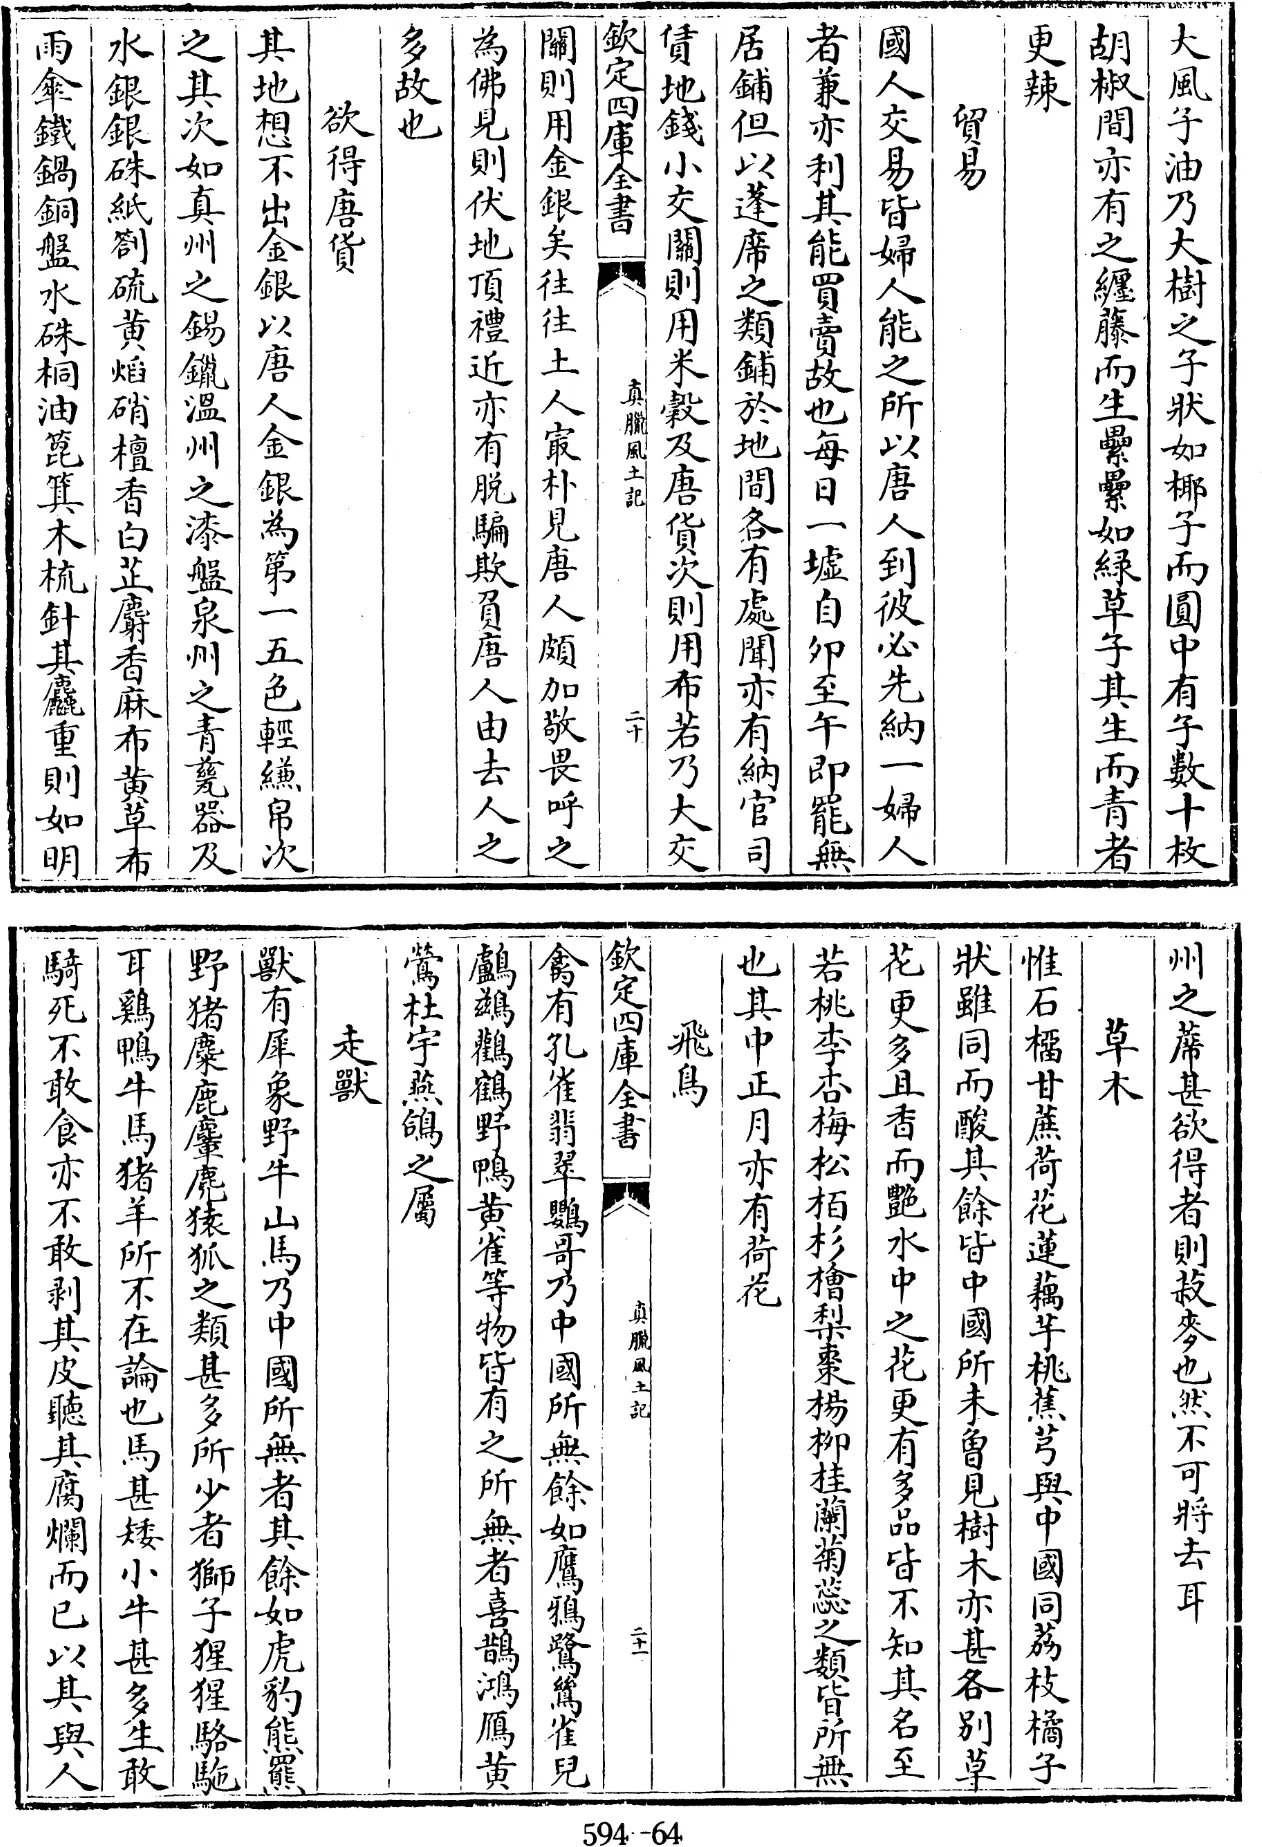 大風子油乃大樹之子狀如椰子而圓中有子數十枚
胡椒間亦有之纏藤而生纍纍如緑草子其生而青者
更辣
貿易
國人交易皆婦人能之所以唐人到彼必先納一婦人
者兼亦利其能買賣故也每日一墟自卯至午即罷無
居鋪但以蓬席之類鋪於地間各有處聞亦有納官司
賃地錢小交關則用米穀及唐貨次則用布若乃大交
欽定四庫全書
真臘風土記
二十
關則用金銀矣往往土人寂朴見唐人頗加敬畏呼之
為佛見則伏地頂禮近亦有脱騙欺負唐人由去人之
多故也
欲得唐貨
其地想不出金銀以唐人金銀為第一五色輕縑帛次
之其次如真州之錫鑞溫州之漆盤泉州之青甆器及
水銀銀硃紙劄硫黄焰硝檀香白芷麝香麻布黄草布
雨傘鐵鍋銅盤水硃桐油篦箕木梳針其麤重則如明
州之蓆甚欲得者則菽麥也然不可將去耳
草木
惟石橊甘蔗荷花蓮藕芋桃蕉芎與中國同荔枝橘子
狀雖同而酸其餘皆中國所未曾見樹木亦甚各别草
花更多且香而艷水中之花更有多品皆不知其名至
若桃李杏梅松栢杉檜梨棗楊柳桂蘭菊蕊之類皆所無
也其中正月亦有荷花
飛鳥
欽定四庫全書
真臘風土記
二十一
禽有孔雀翡翠鸚哥乃中國所無餘如鷹鴉鷺鷥雀兒
鸕鷀鸛鶴野鴨黄雀等物皆有之所無者喜鵲鴻鴈黄
鶯杜宇燕鴿之屬
走獸
獸有犀象野牛山馬乃中國所無者其餘如虎豹熊羆
野猪麋鹿麞麂猿狐之類甚多所少者獅子猩猩駱駞
耳鷄鴨牛馬猪羊所不在論也馬甚矮小牛甚多生敢
騎死不敢食亦不敢剥其皮聽其腐爛而已以其與人
594-64